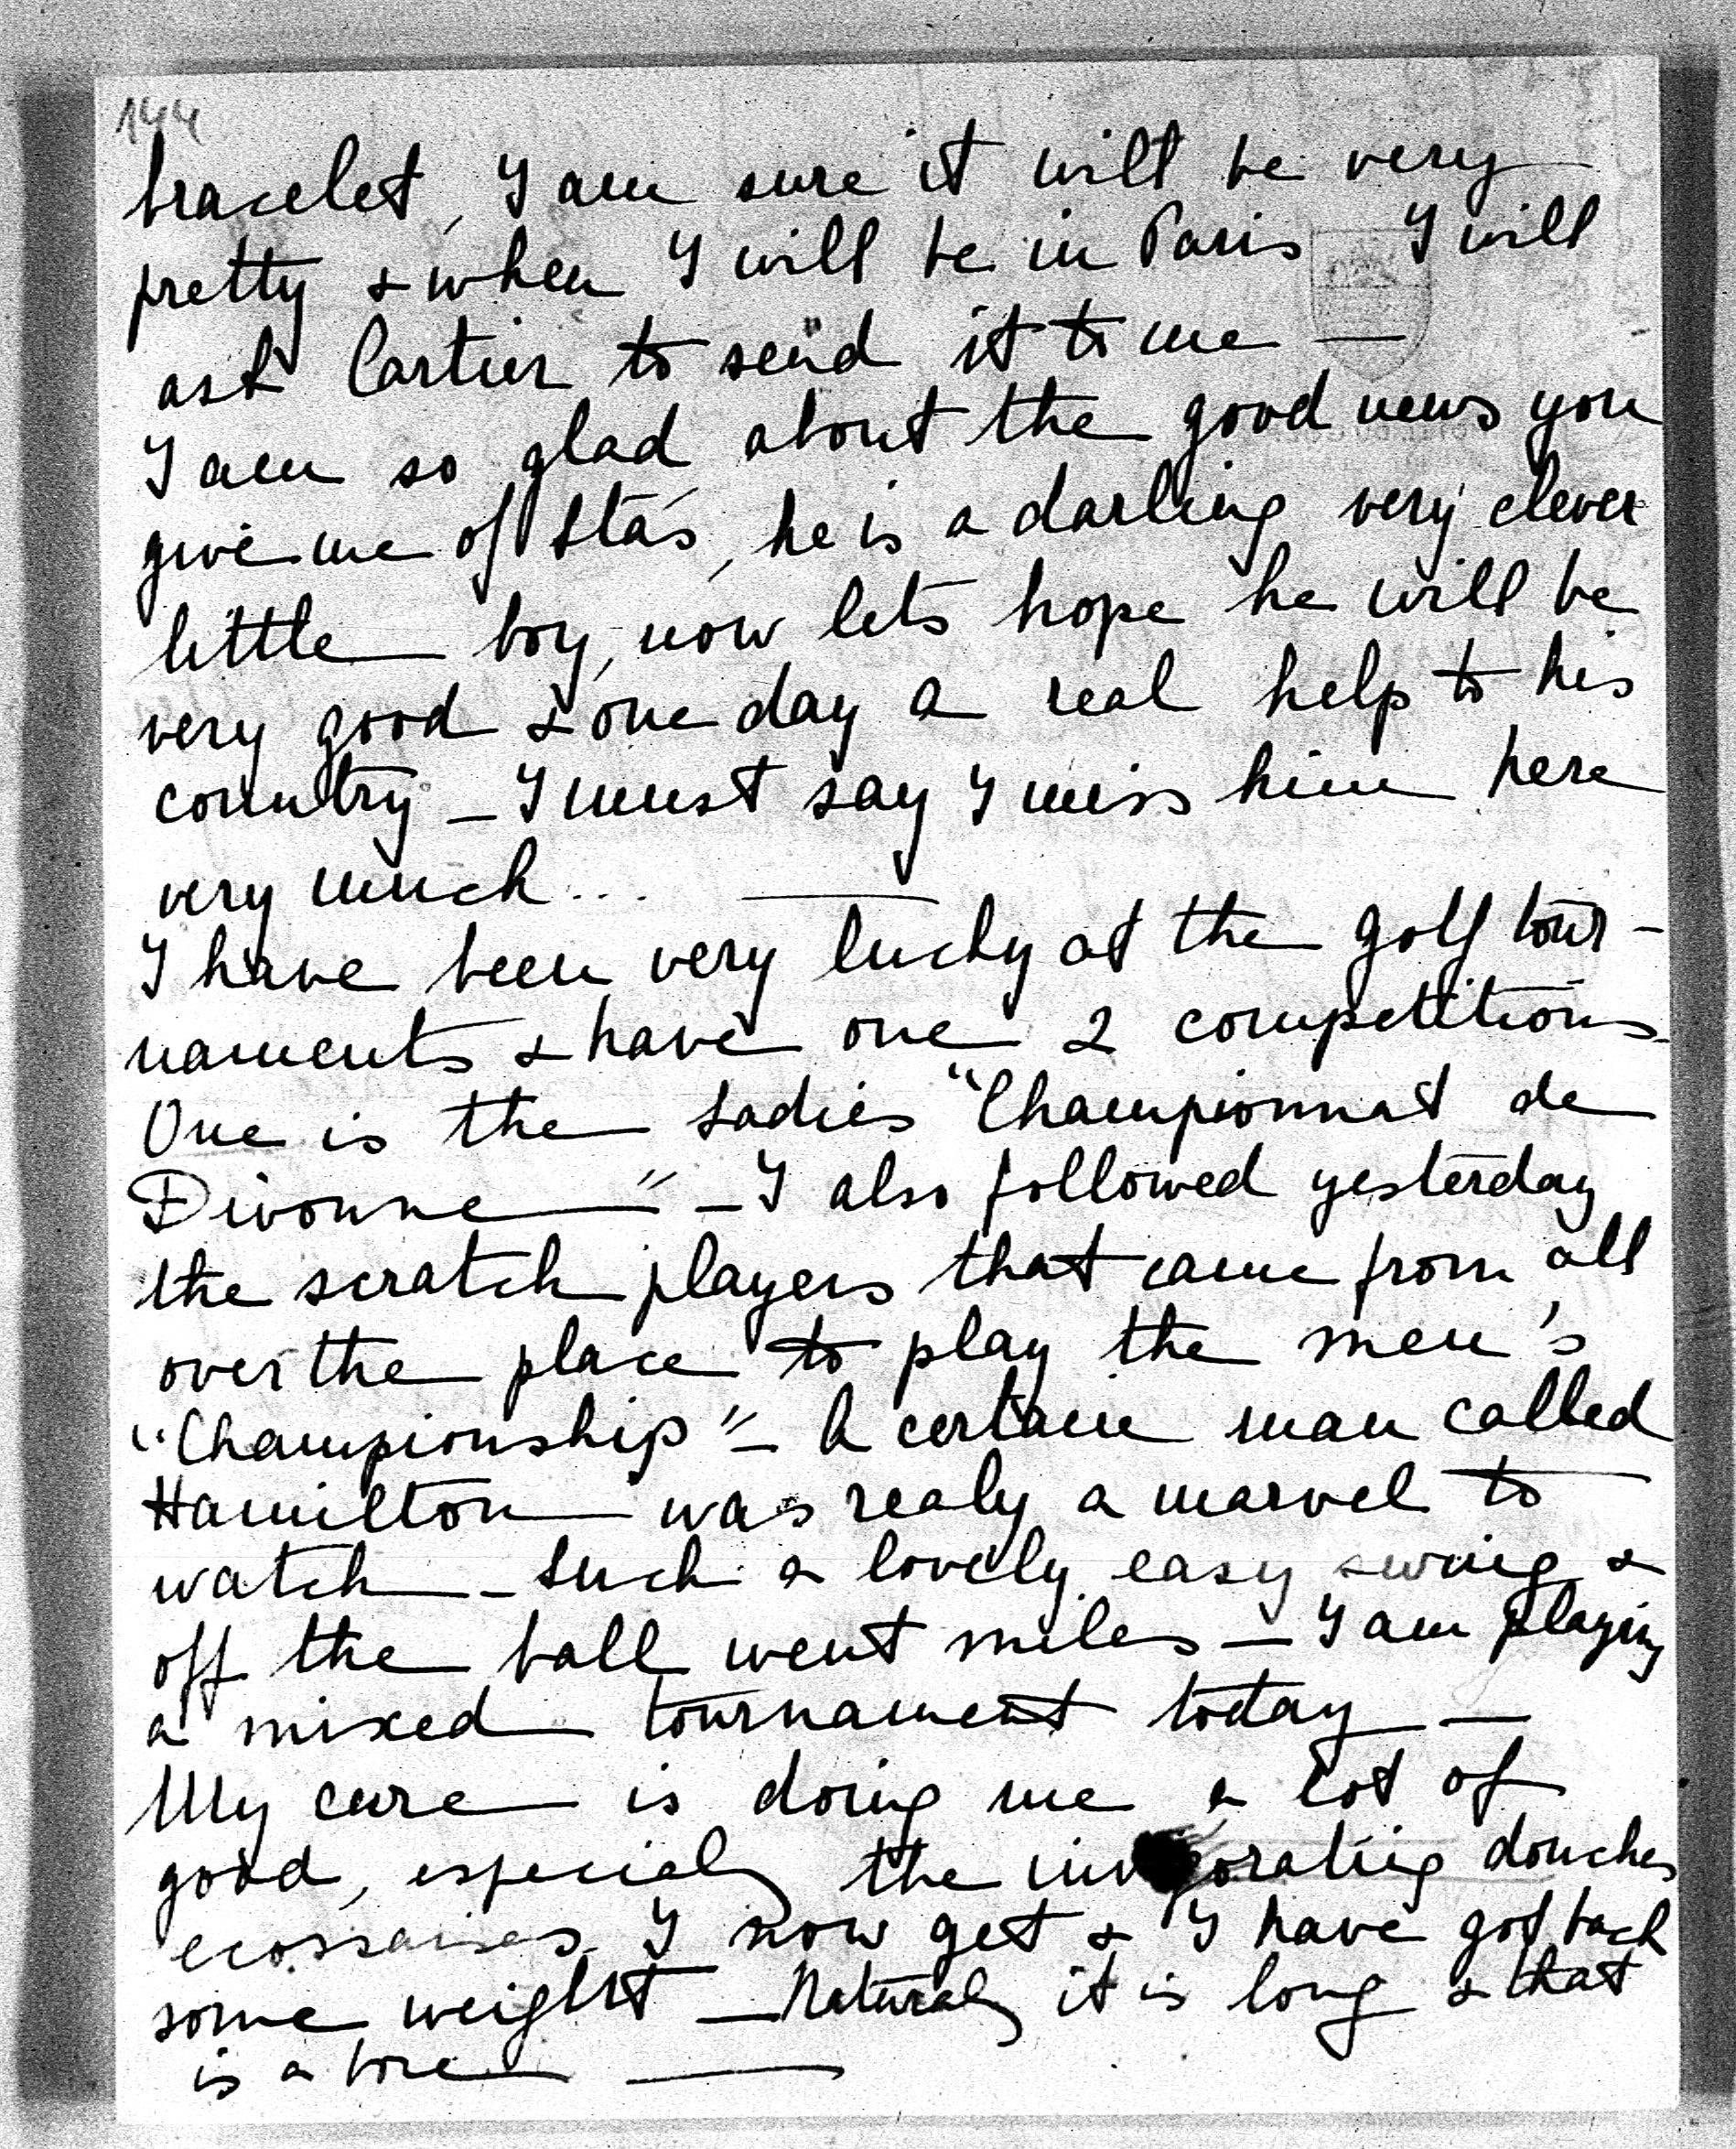 144
bracelet, I am sure it will be very
pretty & when I will be in Paris I will
ask Cartier to send it to me —
I am so glad about the good news you
give me of Stás, he is a darling very clever
little boy, now lets hope he will be
very good & one day a real help to his
country — I must say I miss him here
very much... —
I have been very lucky at the golf tour-
naments & have one 2 competitions.
One is the Ladies "Championnat de
Divonne" — I also followed yesterday
the scratch players that came from all
over the place to play the men's
"Championship" — A certain man called
Hamilton was realy a marvel to
watch — Such a lovely easy swing &
off the ball went miles — I am playing
a mixed tournament today —
My cure is doing me a lot of
good, especialy the invigorating douches
ecossaises I now get & I have got back
some weight — Naturaly it is long & that
is a bore —